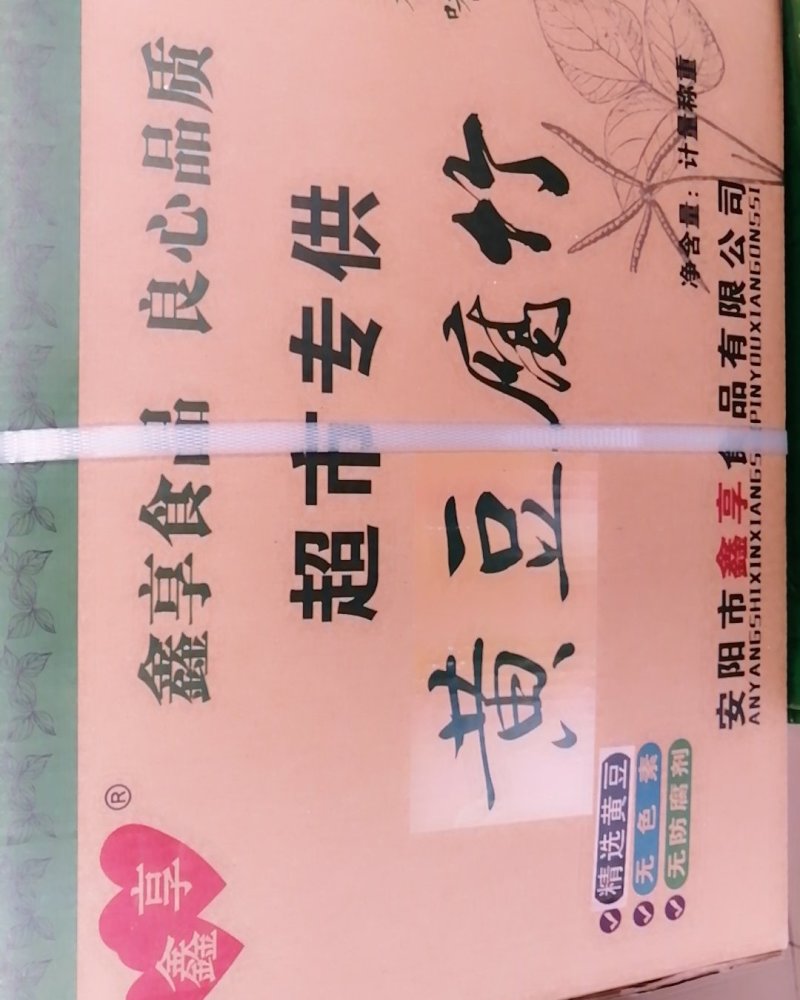 鑫享®
鑫享食品 良心品质
超市专供
黄豆腐竹
精选黄豆
无色素
无防腐剂
净含量：计量称重
安阳市鑫享食品有限公司